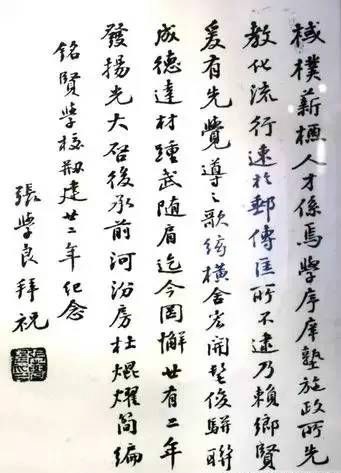 棫樸薪槱人才係焉學序庠塾施政所先
教化流行速於郵傳匡所不逮乃賴鄉賢
爰有先覺導之歌絃横舍宏開髦俊駢聯
成德達材踵武隨肩迄今罔懈廿有二年
發揚光大啓後承前河汾房杜焜燿簡編
銘賢學校剏建廿二年紀念
張學良拜祝